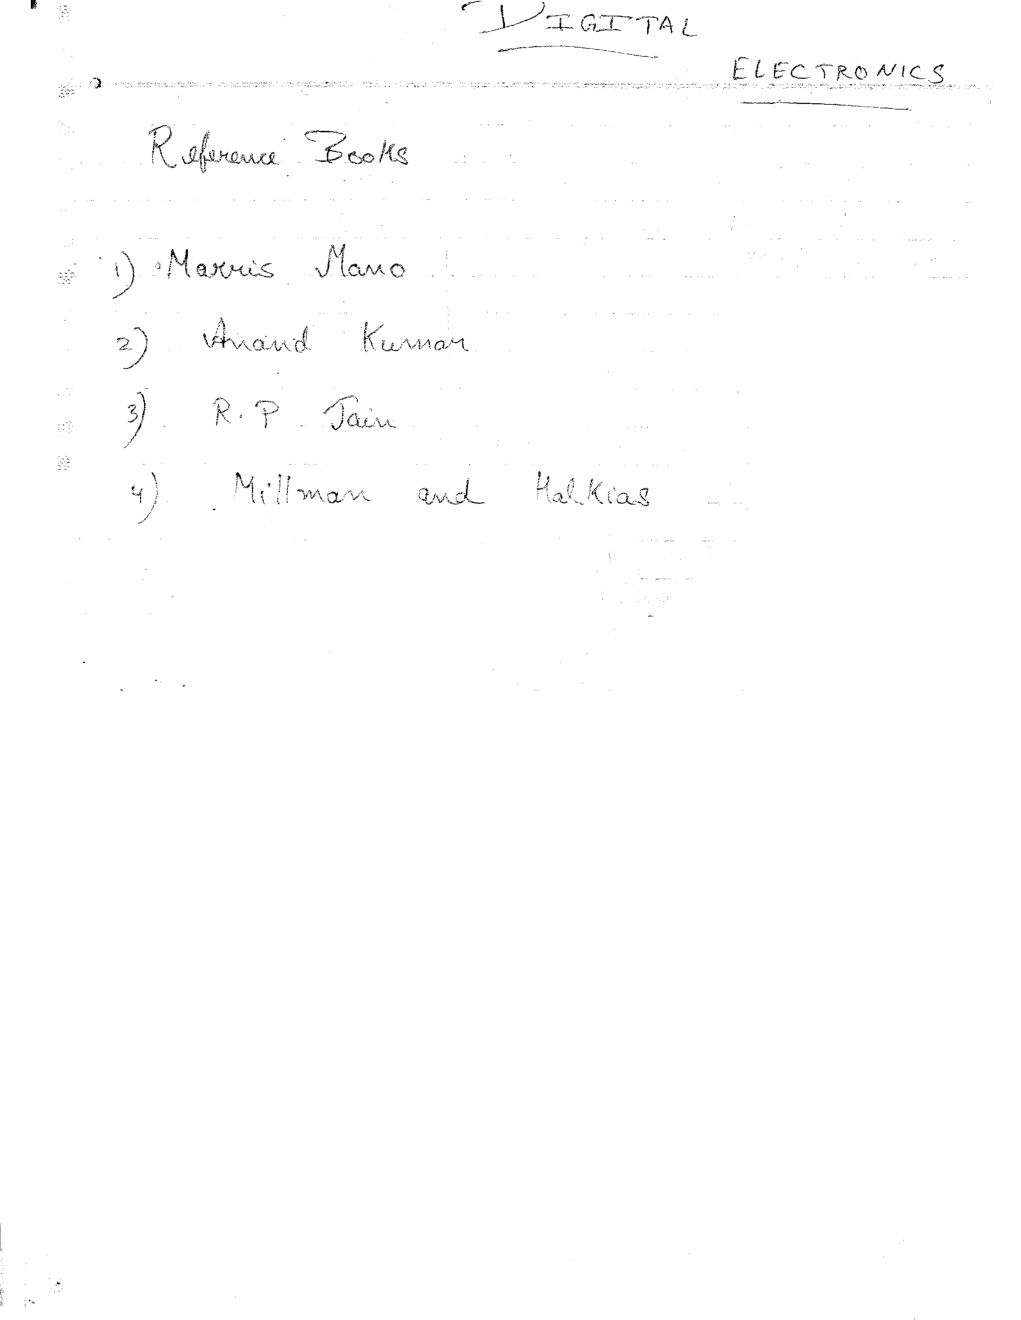 DIGITAL
ELECTRONICS
Reference Books
1) Morris Mano
2) Anand Kumar
3) R.P Jain
4) Millman and Halkias